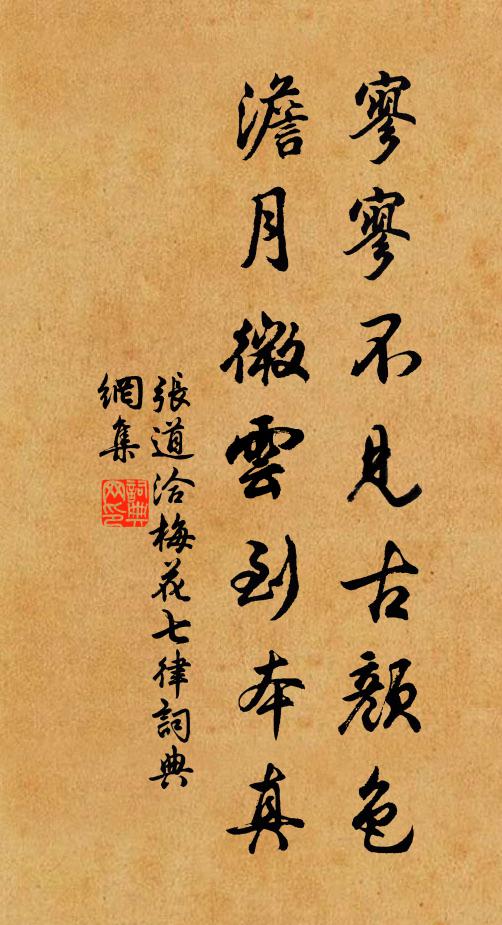 寥寥不見古顏色
澹月微雲到本真
張道洽梅花七律詞典
網集
詞典
网印